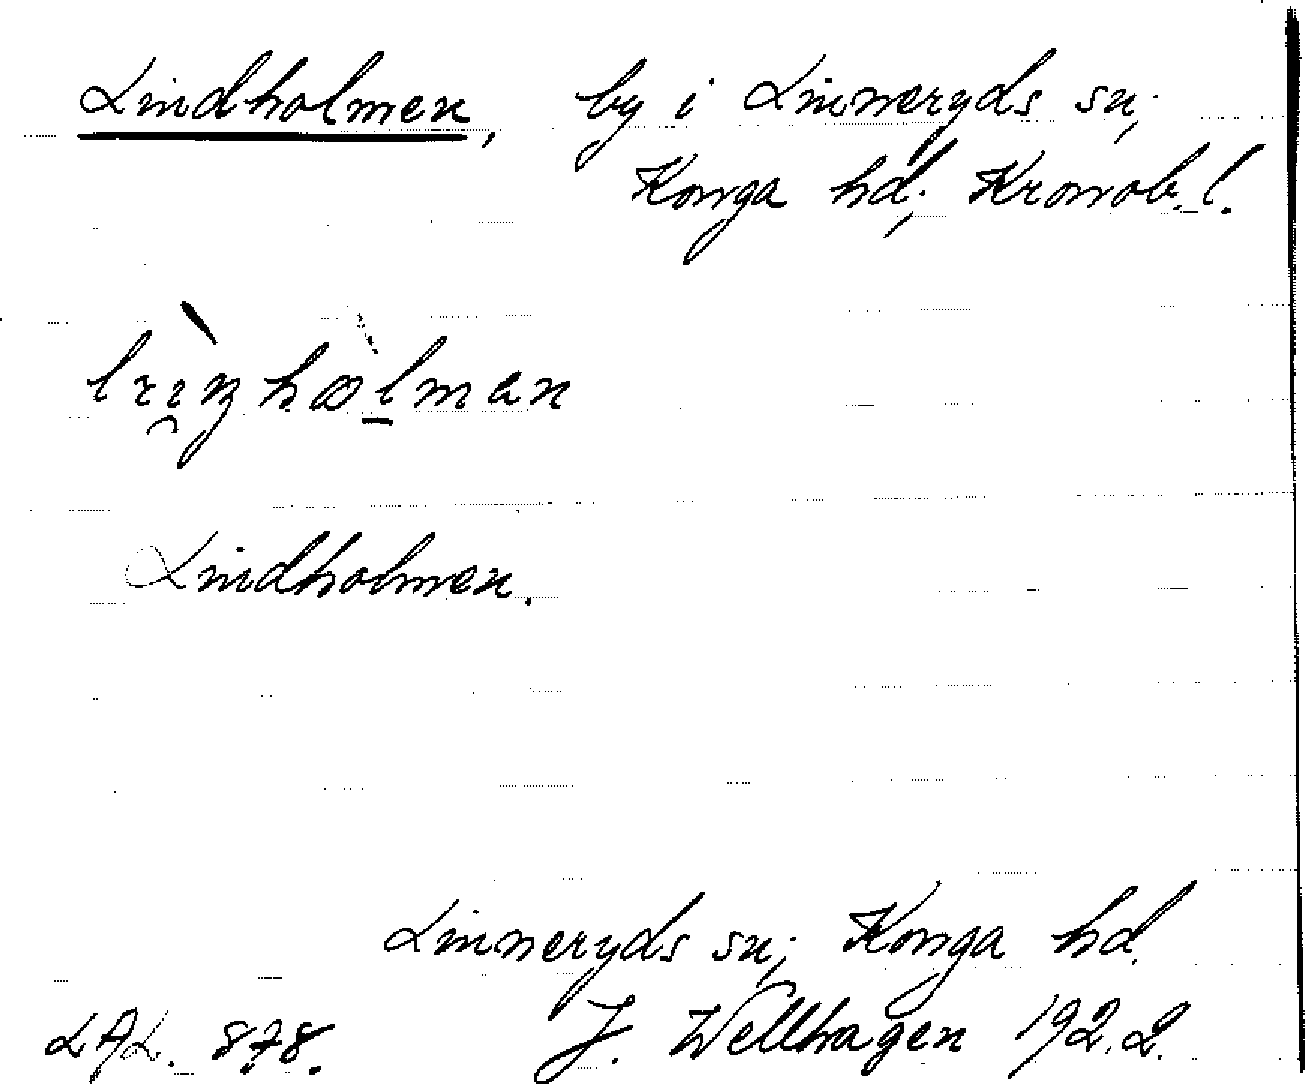 Lindholmen, by i Linneryds sn,
Konga hd, Kronob. l.
Lindholmen.
Linneryds sn, Konga hd.
LAL. 878. J. Wellhagen 1922.